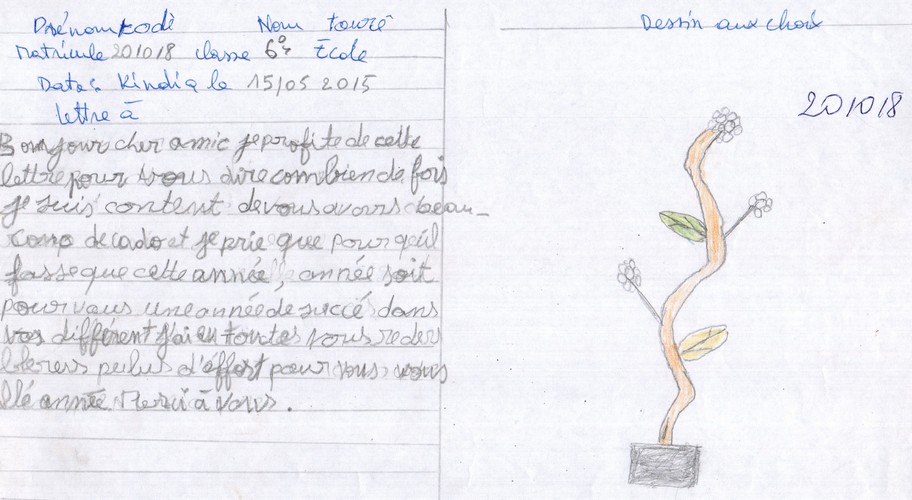 Prénom kodè Nom touré
Matricule 201018 classe 6º École
Date: Kindia le 15/05 2015
lettre à
Bonjour cher amic je profite de cette
lettre pour vous dire combien de fois
je suis content de vous avoirs beau-
coup de cado et je prie que pour qu'il
fasse que cette année, année soit
pour vous une année de succé dans
vos différent j'ai en toutes vous reders
d'effort pour vous
année. Merci à vous.
Dessin aux choix
201018